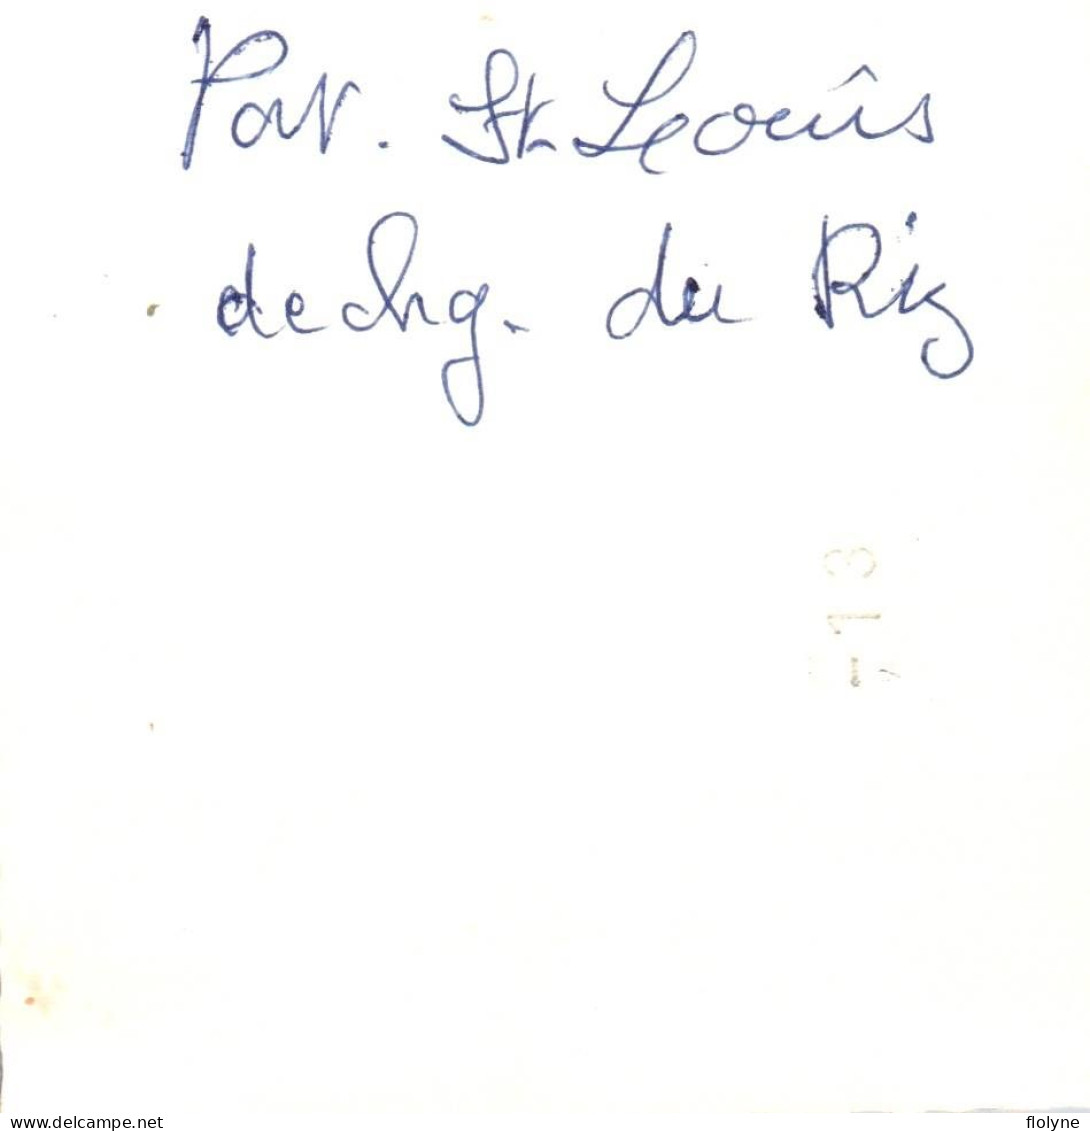 Port. St Leouis
dechrg. du Riz
713
www.delcampe.net
flolyne